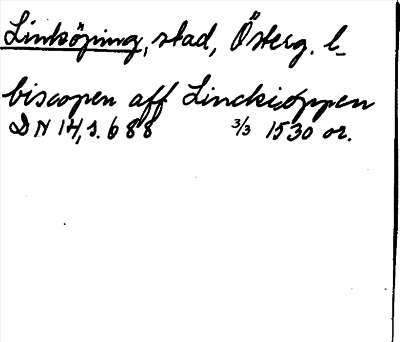 Linköping, stad, Österg. l.
biscopen aff Linckiöppen
DN 14, s. 688 3/3 1530 or.